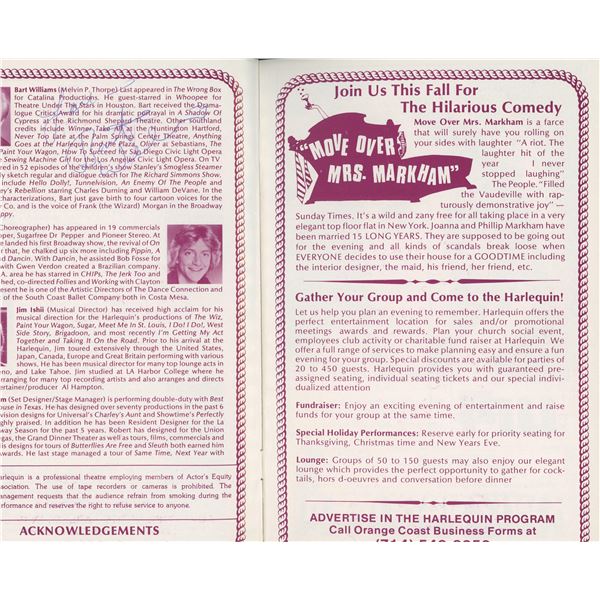 Bart Williams (Melvin P. Thorpe) Last appeared in The Wrong Box
for Catalina Productions. He guest-starred in Whoopee for
Theatre Under The Stars in Houston. Bart received the Drama-
logue Critics Award for his dramatic portrayal in A Shadow Of
Cypress at the Richmond Shepard Theatre. Other southland
credits include Winner Take All at the Huntington Hartford,
Never Too Late at the Palm Springs Center Theatre, Anything
Goes at the Harlequin and the Plaza, Oliver at Sebastians, The
Paint Your Wagon, How To Succeed for San Diego Civic Light Opera
e Sewing Machine Girl for the Los Angeles Civic Light Opera. On TV
red in 52 episodes of the children's show Stanley's Smogless Steamer
ly sketch regular and dialogue coach for The Richard Simmons Show.
include Hello Dolly!, Tunnelvision, An Enemy Of The People and
y's Rebellion starring Charles Durning and William DeVane. In the
characterizations, Bart just gave birth to four cartoon voices for the
Co. and is the voice of Frank (the Wizard) Morgan in the Broadway
ppy.
Choreographer) has appeared in 19 commercials
pper, Sugarfree Dr Pepper and Pioneer Stereo. At
e landed his first Broadway show, the revival of On
r that, he chalked up six more including Pippin, A
d Dancin. With Dancin, he assisted Bob Fosse for
with Gwen Verdon created a Brazilian company.
A. area he has starred in CHiPs, The Jerk Too and
hed, co-directed Follies and Working with Clayton
resent he is one of the Artistic Directors of The Dance Connection and
of the South Coast Ballet Company both in Costa Mesa.
Jim Ishii (Musical Director) has received high acclaim for his
musical direction for the Harlequin's productions of The Wiz,
Paint Your Wagon, Sugar, Meet Me In St. Louis, I Do! I Do!, West
Side Story, Brigadoon, and most recently I'm Getting My Act
Together and Taking It On the Road. Prior to his arrival at the
Harlequin, Jim toured extensively through the United States,
Japan, Canada, Europe and Great Britain performing with various
shows. He has been musical director for many top lounge acts in
eno, and Lake Tahoe. Jim studied at LA Harbor College where he
rranging for many top recording artists and also arranges and directs
tertainer/producer Al Hampton.
m (Set Designer/Stage Manager) is performing double-duty with Best
house in Texas. He has designed over seventy productions in the past 6
vision designs for Universal's Charley's Aunt and Showtime's Perfectly
ghly praised. In addition he has been Resident Designer for the La
way Season for the past 5 years. Robert has designed for the Union
egas, the Grand Dinner Theatre as well as tours, films, commercials and
is designs for tours of Butterflies Are Free and Sleuth both earned him
Awards. He last stage managed a tour of Same Time, Next Year with
arlequin is a professional theatre employing members of Actor's Equity
ssociation. The use of tape recorders or cameras is prohibited. The
anagement requests that the audience refrain from smoking during the
erformance and reserves the right to refuse service to anyone.
ACKNOWLEDGEMENTS
Join Us This Fall For
The Hilarious Comedy
"MOVE OVER
MRS. MARKHAM"
Move Over Mrs. Markham is a farce
that will surely have you rolling on
your sides with laughter "A riot. The
laughter hit of the
year I never
stopped laughing"
The People. "Filled
the Vaudeville with rap-
turously demonstrative joy" —
Sunday Times. It's a wild and zany free for all taking place in a very
elegant top floor flat in New York. Joanna and Phillip Markham have
been married 15 LONG YEARS. They are supposed to be going out
for the evening and all kinds of scandals break loose when
EVERYONE decides to use their house for a GOODTIME including
the interior designer, the maid, his friend, her friend, etc.
Gather Your Group and Come to the Harlequin!
Let us help you plan an evening to remember. Harlequin offers the
perfect entertainment location for sales and/or promotional
meetings awards and rewards. Plan your church social event,
employees club activity or charitable fund raiser at Harlequin. We
offer a full range of services to make planning easy and ensure a fun
evening for your group. Special discounts are available for parties of
20 to 450 guests. Harlequin provides you with guaranteed pre-
assigned seating, individual seating tickets and our special indivi-
dualized attention
Fundraiser: Enjoy an exciting evening of entertainment and raise
funds for your group at the same time.
Special Holiday Performances: Reserve early for priority seating for
Thanksgiving, Christmas time and New Years Eve.
Lounge: Groups of 50 to 150 guests may also enjoy our elegant
lounge which provides the perfect opportunity to gather for cock-
tails, hors d-oeuvres and conversation before dinner
ADVERTISE IN THE HARLEQUIN PROGRAM
Call Orange Coast Business Forms at